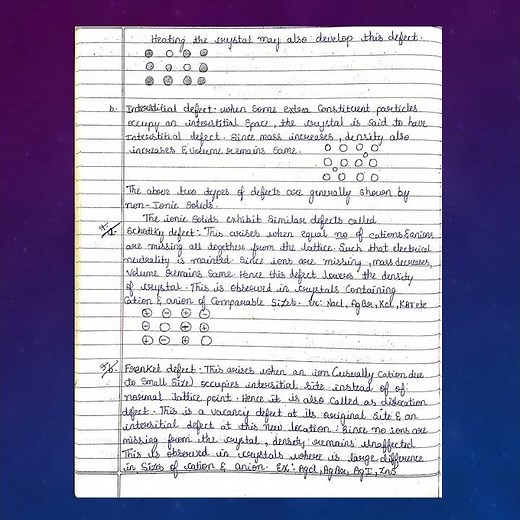 Heating the crystal may also develop this defect.
b. Interstitial defect:- when some extra constituent particles
occupy an interstitial space, the crystal is said to have
interstitial defect. Since mass increases, density also
increases & volume remains same.
The above two types of defects are generally shown by
non-Ionic solids.
The ionic solids exhibit similar defects called
a. Schottky defect:- This arises when equal no of cations & anions
are missing all together from the lattice. Such that electrical
neutrality is mainted Since ions are missing, mass decreases,
volume remains same. Hence this defect lowers the density
of crystal. This is observed in crystals containing
cation & anion of comparable sizes. Ex: Nacl, AgBr, Kcl, KBr etc
+ - + -
- + +
+ - +
b. Frenkel defect:- This arises when an ion (usually cation due
to small size) occupies intersitial site instead of of
normal lattice point. Hence it is also called as dislocation
defect. This is a vacancy defect at its original site & an
intersitial defect at this new location. Since no ions are
missing from the crystal, density remains unaffected
This is observed in crystals where is large difference
in sizes of cation & anion. Ex:- Agcl, AgBr, AgI, Zns